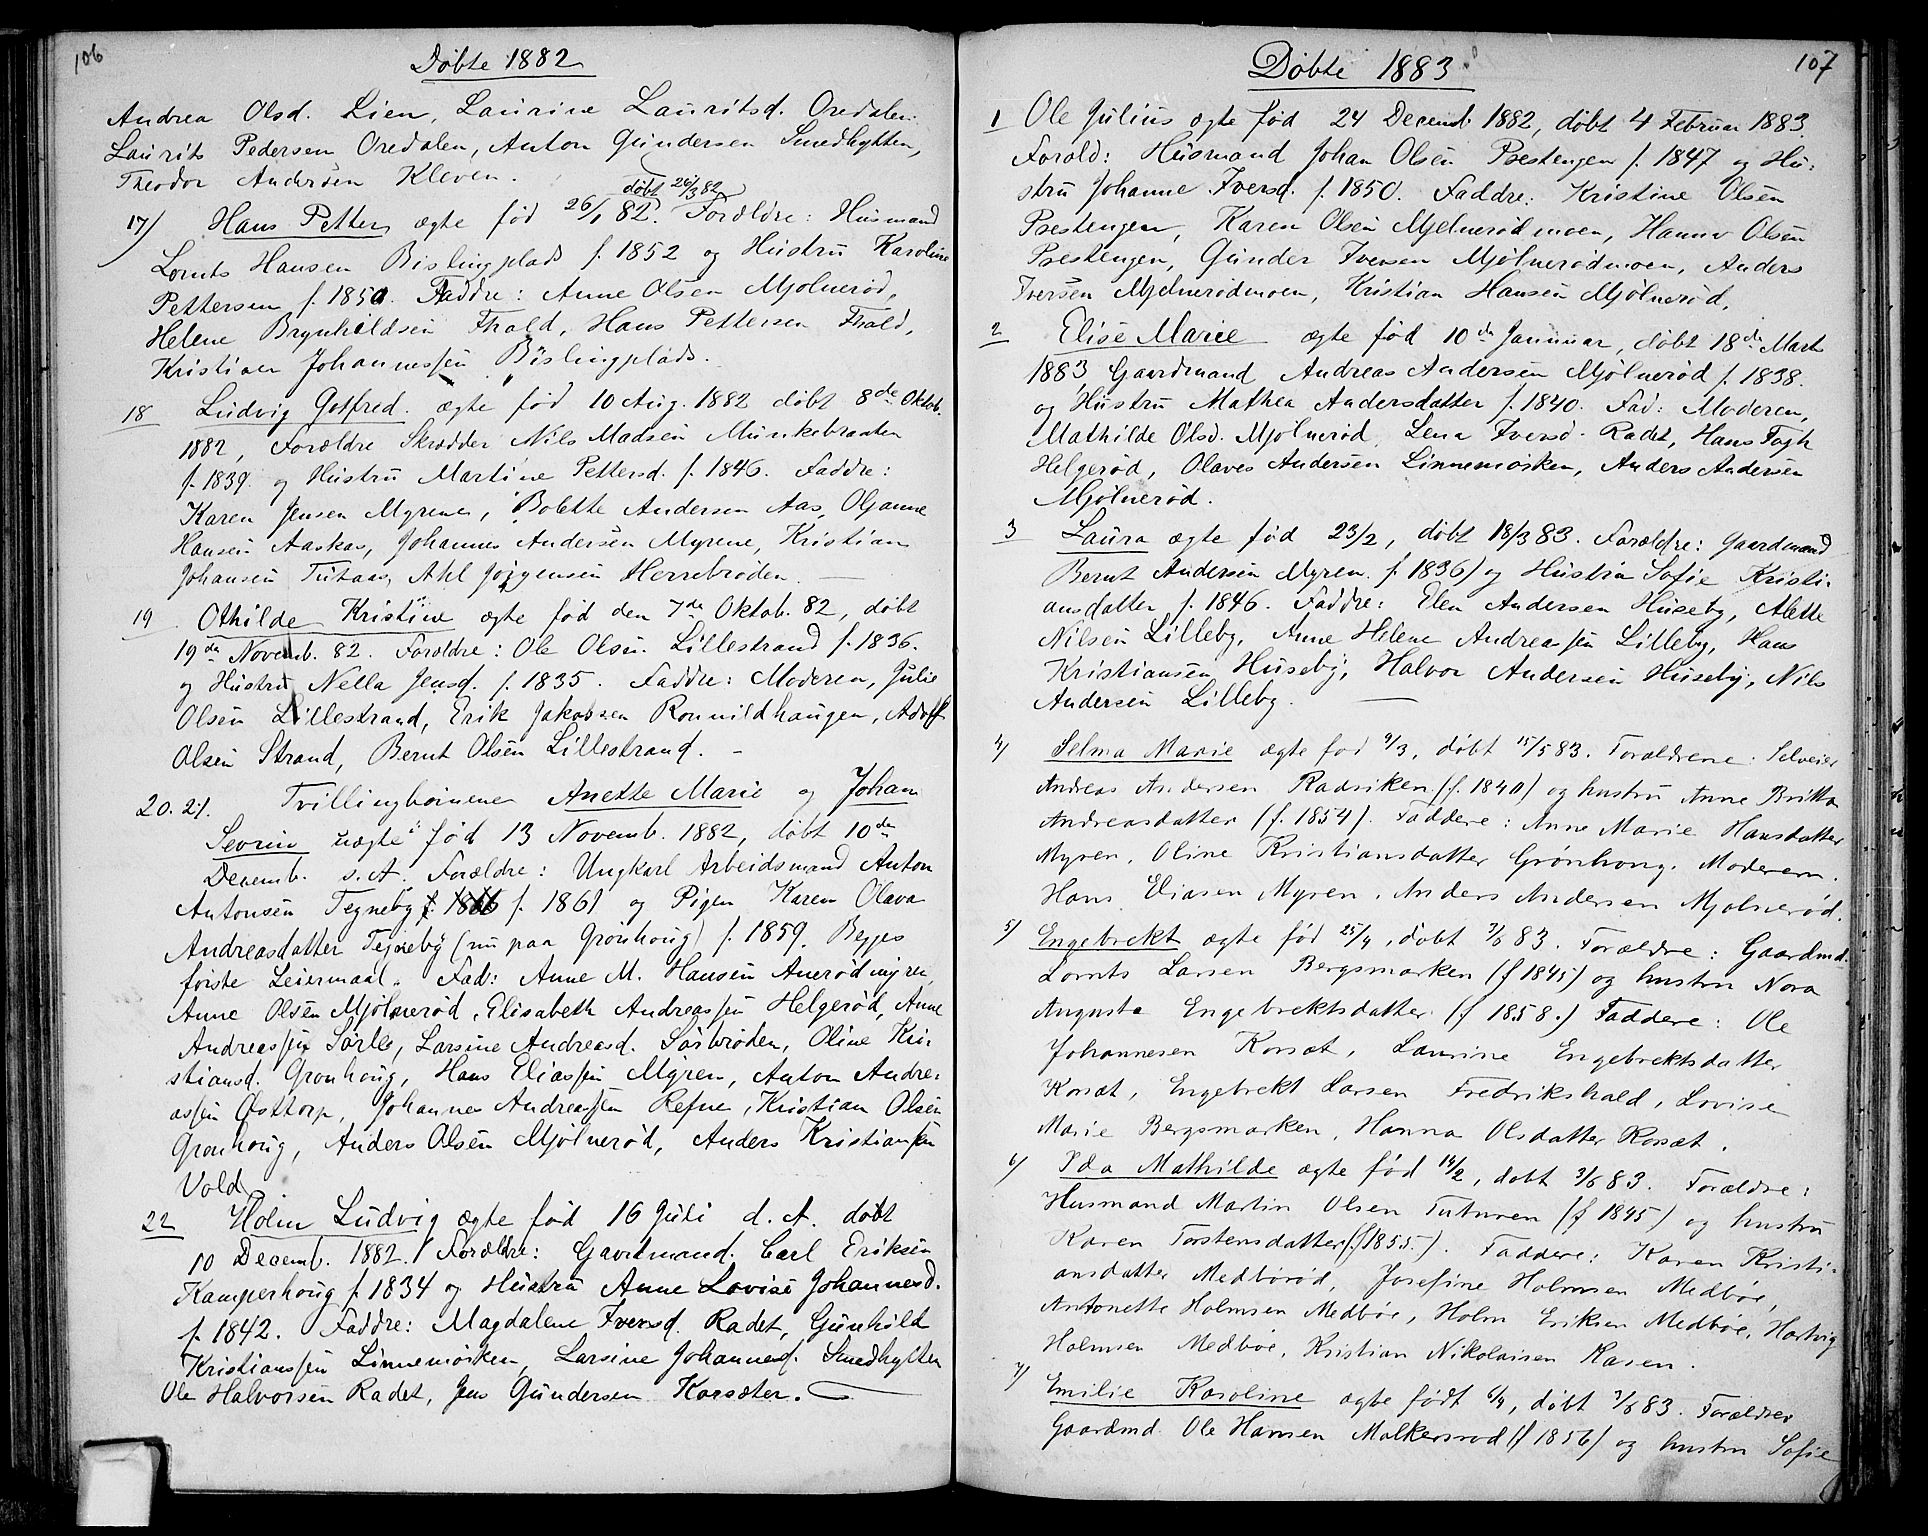 106
Döbte 1882
Andrea Olsd. Lien, Laurine Lauritsd. Oredalen.
Laurits Pedersen Oredalen, Anton Gundersen Smedhytten,
Theodor Andersen Kleven.
døbt 26/3 82
17) Hans Petter ægte fød 26/1 82. Forældre: Husmand
Lornts Hansen Bislingplads f. 1852 og Hustru Karoline
Pettersen f. 1850. Faddre: Anne Olsen Mjølnerød,
Helene Brynhildsen Frald, Hans Pettersen Frald,
Kristian Johannessen Bislingplads.
18 Ludvig Gotfred. ægte fød 10 Aug. 1882 døbt 8de Oktob.
1882, Forældre Skrædder Nils Madsen Munkebraaten
f. 1839 og Hustru Martine Pettersd. f. 1846. Faddre:
Karen Jensen Myrene, Bolette Andersen Aas, Oljanne
Hansen Aaskas, Johannes Andersen Myrene, Kristian
Johansen Tutaas, Axl Jørgensen Herrebrøden.
19 Othilde Kristine ægte fød den 7de Oktob. 82, døbt
19de Novemb. 82. Forældre: Ole Olsen Lillestrand f. 1836.
og Hustru Nella Jensd. f. 1835. Faddre: Moderen, Julie
Olsen Lillestrand, Erik Jakobsen Ronnildhaugen, Adolf
Olsen Strand, Bernt Olsen Lillestrand.
20. 21. Tvillingbørnene Anette Marie og Johan
Severin uægte fød 13 Novemb. 1882, døbt 10de
Decemb. s. A. Forældre: Ungkarl Arbeidsmand Anton
Antonsen Tegneby f. 1861 og Pigen Karen Olava
Andreasdatter Tegneby (nu paa Grønhoug) f. 1859. Begges
første Leiermaal. Fad: Anne M. Hansen Anerødmyren
Anne Olsen Mjølnerød, Elisabeth Andreassen Helgerød, Anne
Andreassen Sørlie, Larsine Andreasd. Sørbrøden, Oline Kri-
stiansd. Grønhoug, Hans Eliassen Myren, Anton Andre-
assen Østtorp, Johannes Andreassen Refne, Kristian Olsen
Grønhoug, Anders Olsen Mjølnerød, Anders Kristiansen
Vold
22 Holm Ludvig ægte fød 16 Juli d. A. døbt
10 Decemb. 1882. Forældre: Gaardmand. Carl Eriksen
Kamperhoug f. 1834 og Hustru Anne Lovise Johannesd.
f. 1842. Faddre: Magdalene Iversd. Radet, Gunhild
Kristianssen Linnemøsken, Larsine Johannesd. Smedhytten
Ole Halvorsen Radet, Jens Gundersen Korsæter.
107
Döbte 1883
1 Ole Julius ægte fød 24 Decemb 1882, døbt 4 Februar 1883.
Forøld: Husmand Johan Olsen Prestengen f. 1847 og Hu-
stru Johanne Iversd. f. 1850. Faddre: Kristine Olsen
Prestengen, Karen Olsen Mjølnerødmoen, Hanna Olsen
Prestengen, Gunder Iversen Mjølnerødmoen, Anders
Iversen Mjølnerødmoen, Kristian Hansen Mjølnerød.
2 Elise Marie ægte fød 10de Januar, døbt 18de Marts
1883 Gaardmand Andreas Andersen Mjølnerød f. 1838.
og Hustru Mathea Andersdatter f. 1840. Fad: Moderen,
Mathilde Olsd. Mjølnerød, Lena Iversd. Radet, Hans
Helgerød, Olaves Andersen Linnemøsken, Anders Andersen
Mjølnerød.
3 Laura ægte fød 23/2, døbt 18/3 83. Forældre: Gaardmand
Bernt Andersen Myren f. 1836) og Hustru Sofie Kristi-
ansdatter f. 1846. Faddre: Elen Andersen Huseby, Alette
Nilsen Lilleby, Anne Helene Andreassen Lilleby, Hans
Kristiansen Huseby, Halvor Andersen Huseby, Nils
Andersen Lilleby.
4) Selma Marie ægte fød 9/3, døbt 15/5 83. Forældrene: Selveier
Andreas Andersen Radsiken (f. 1840) og hustru Anne Britta
Andreasdatter (f. 1854). Faddere: Anne Marie Hansdatter
Myren, Oline Kristiansdatter Grønhoug, Moderen.
Hans Eliasen Myren, Anders Andersen Mjølnerød.
5) Engebrekt ægte fød 25/4, døbt 3/6 83. Forældre: Gaardmd.
Lornts Larsen Bergsmarken (f 1845) og hustru Nora
Augusta Engebrektsdatter (f 1858.) Faddere: Ole
Johannesen Korsæt, Laurine Engebrektsdatter
Korsæt, Engebrekt Larsen Fredrikshald, Lovise
Marie Bergsmarken, Hanna Olsdatter Korsæt.
6) Ida Mathilde ægte fød 14/2, døbt 3/6 83. Forældre:
Husmand Martin Olsen Tuturen (f 1845) og hustru
Karen Torstensdatter (f 1855.). Faddere: Karen Kristi-
ansdatter Medbørød, Josefine Holmsen Medbøe,
Antonette Holmsen Medbøe, Holm Eriksen Medbøe, Hartvig
Holmsen Medbøe, Kristian Nikolaisen Kasen.
7) Emilie Karoline ægte født 6/4, døbt 3/6 83. Forældre
Gaardmd Ole Hansen Molkersrød (f 1856) og hustru Sofie